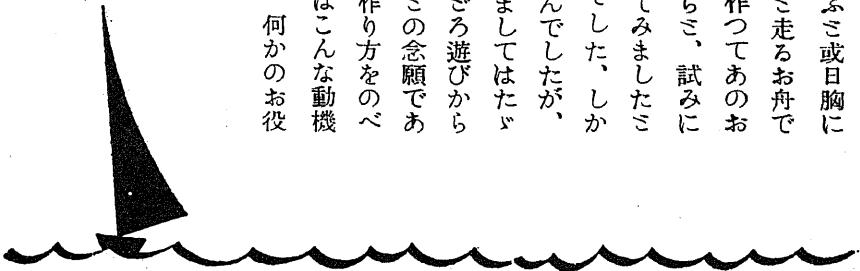 ふと或日胸に
と走るお舟で
作つてあのお
らと、試みに
てみましたと
でした、しか
んでしたが、
ましてはたゞ
ごろ遊びから
との念願であ
作り方をのべ
はこんな動機
何かのお役